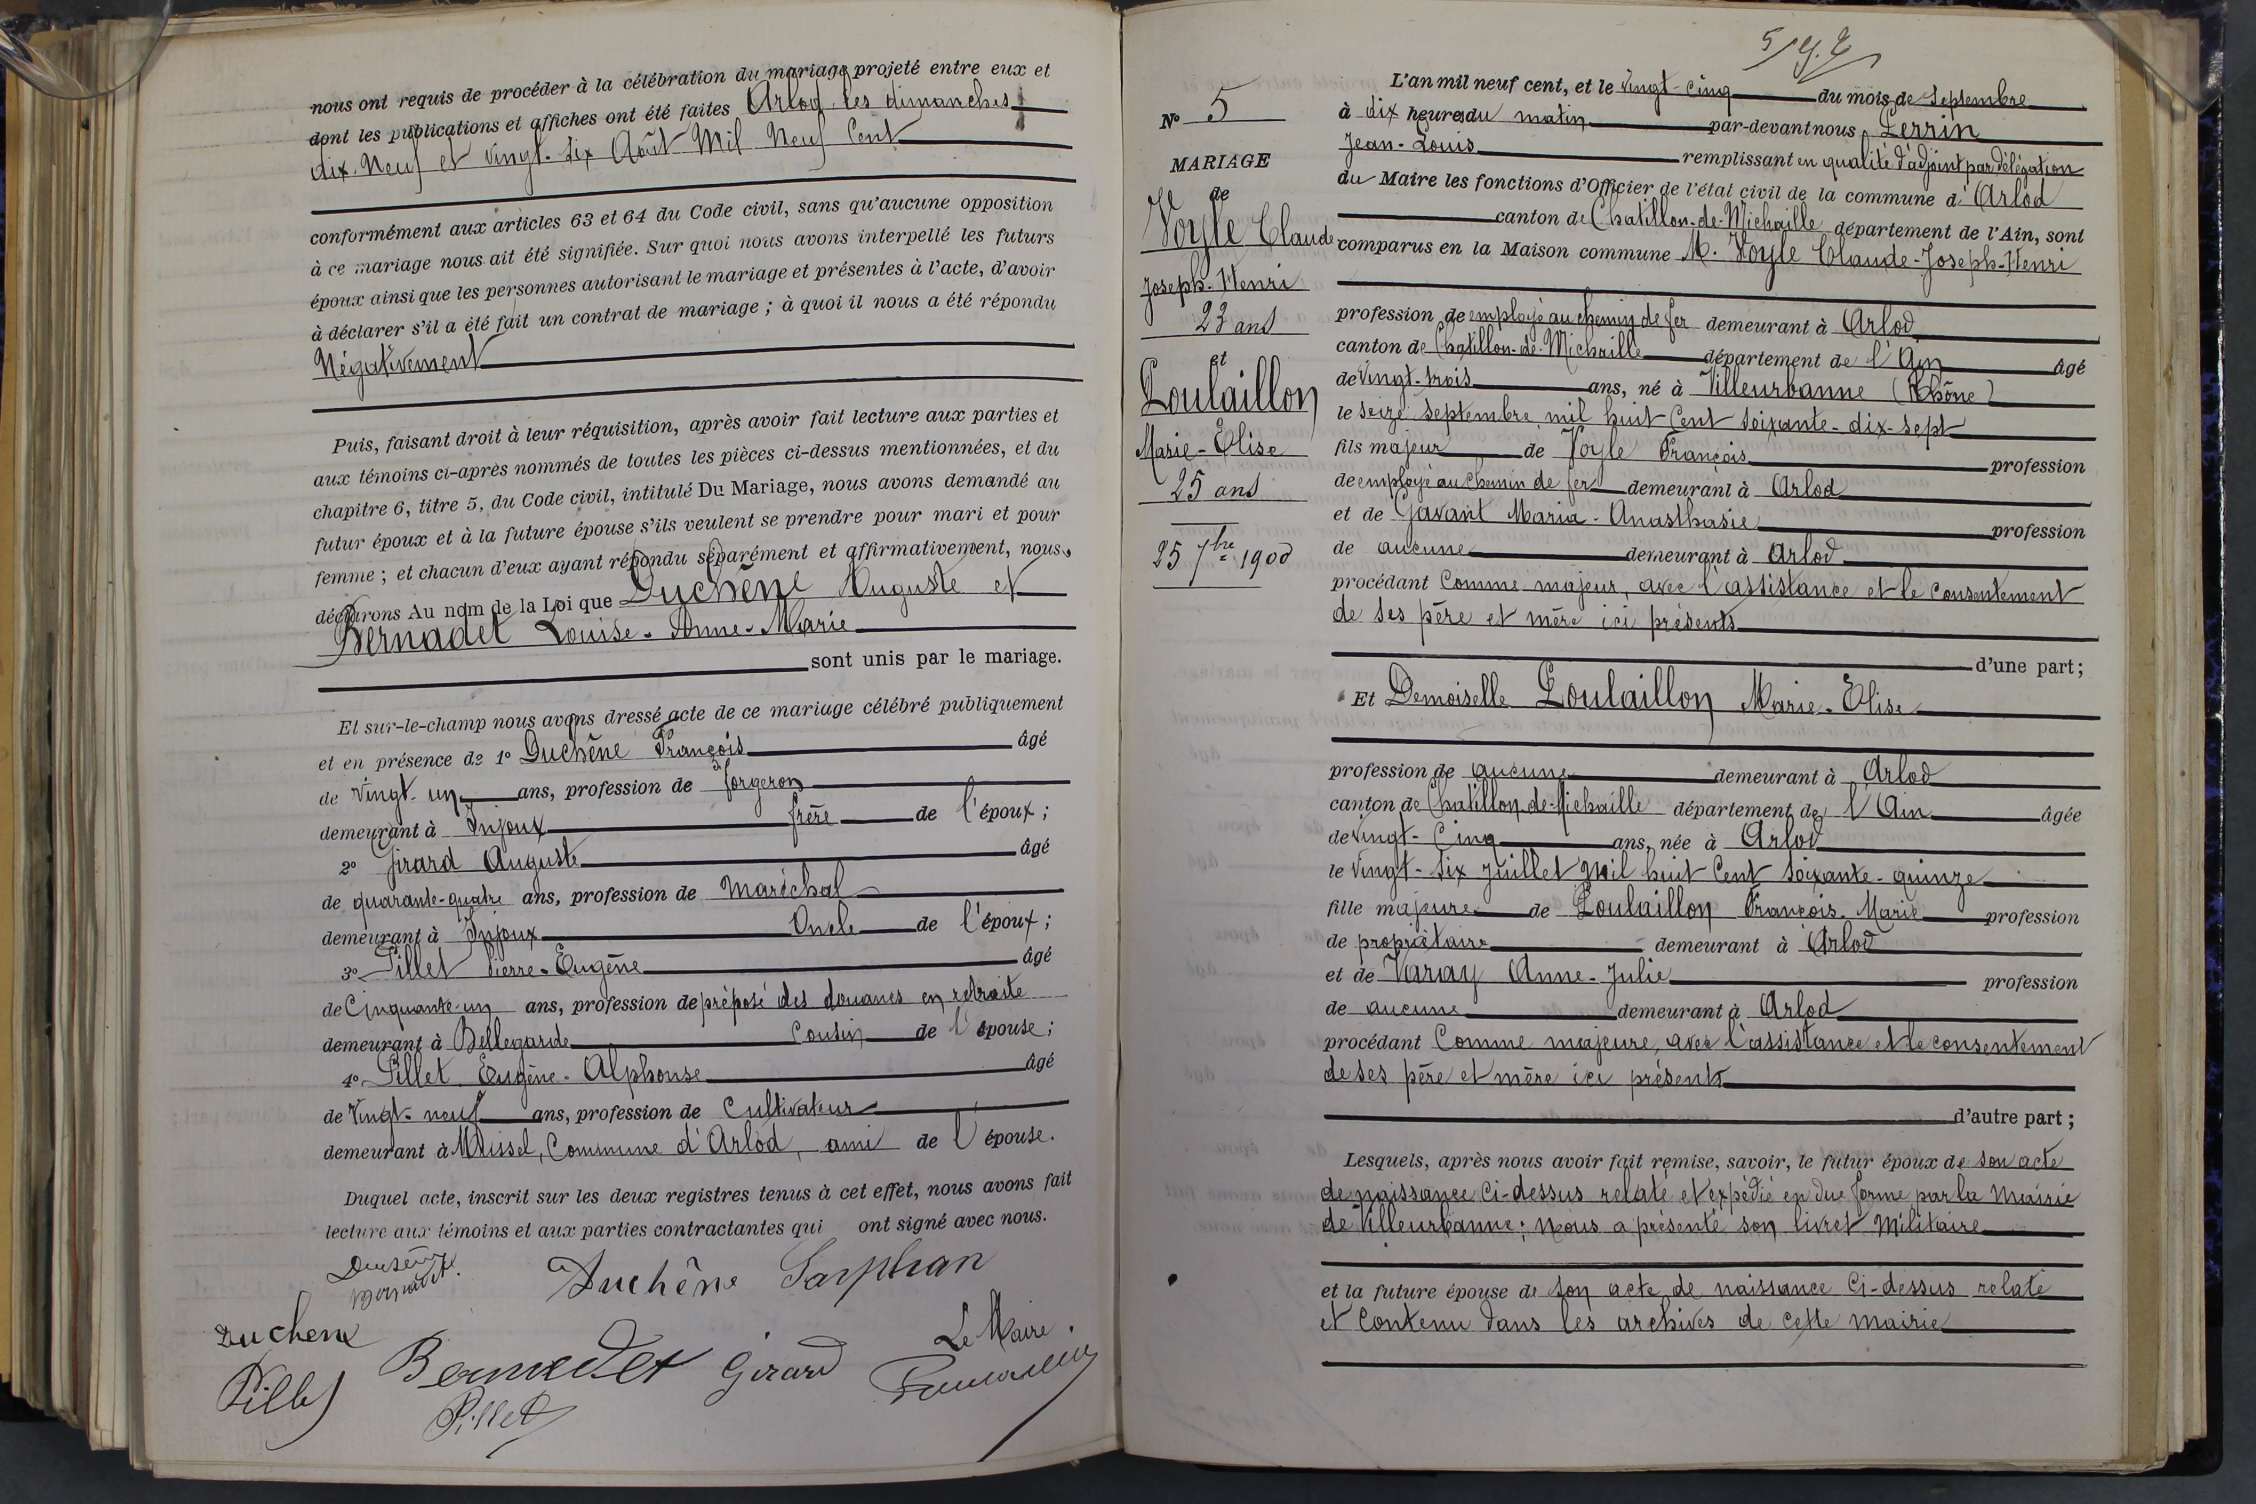 nous ont requis de procéder à la célébration du mariage projeté entre eux et
dont les publications et affiches ont été faites Arlod les dimanches
dix-Neuf et vingt-six Août Mil Neuf Cent
conformément aux articles 63 et 64 du Code civil, sans qu'aucune opposition
à ce mariage nous ait été signifiée. Sur quoi nous avons interpellé les futurs
époux ainsi que les personnes autorisant le mariage et présentes à l'acte, d'avoir
à déclarer s'il a été fait un contrat de mariage ; à quoi il nous a été répondu
Négativement
Puis, faisant droit à leur réquisition, après avoir fait lecture aux parties et
aux témoins ci-après nommés de toutes les pièces ci-dessus mentionnées, et du
chapitre 6, titre 5, du Code civil, intitulé Du Mariage, nous avons demandé au
futur époux et à la future épouse s'ils veulent se prendre pour mari et pour
femme ; et chacun d'eux ayant répondu séparément et affirmativement, nous
déclarons Au nom de la Loi que Duchêne Auguste et
Bernadet Louise-Anne-Marie
sont unis par le mariage.
Et sur-le-champ nous avons dressé acte de ce mariage célébré publiquement
et en présence de 1° Duchêne François âgé
de vingt-un ans, profession de forgeron
demeurant à Injoux frère de l'époux ;
2° Girard Auguste âgé
de quarante-quatre ans, profession de Maréchal
demeurant à Injoux Oncle de l'époux ;
3° Pillet Pierre-Eugène âgé
de Cinquante-un ans, profession de préposé des douanes en retraite
demeurant à Bellegarde Cousin de l'épouse ;
4° Pillet Eugène-Alphonse âgé
de Vingt-neuf ans, profession de Cultivateur
demeurant à Mussel, Commune d'Arlod, ami de l'épouse.
Duquel acte, inscrit sur les deux registres tenus à cet effet, nous avons fait
lecture aux témoins et aux parties contractantes qui ont signé avec nous.
Bernadet
Duchêne Sarphan
Duchene
Le Maire
Pillet Bernadet Girard
Pillet
N° 5
MARIAGE
de
Voyle Claude
Joseph-Henri
23 ans
et
Poulaillon
Marie-Elise
25 ans
25 7bre 1900
L'an mil neuf cent, et le vingt-cinq du mois de Septembre
à dix heures du matin par-devant nous Perrin
Jean-Louis remplissant en qualité d'adjoint par délégation
du Maire les fonctions d'Officier de l'état civil de la commune d'Arlod
canton de Chatillon-de-Michaille département de l'Ain, sont
comparus en la Maison commune M. Voyle Claude-Joseph-Henri
profession de employé au chemin de fer demeurant à Arlod
canton de Chatillon-de-Michaille département de l'Ain âgé
de Vingt-trois ans, né à Villeurbanne (Rhône)
le seize Septembre mil huit Cent Soixante-dix-sept
fils majeur de Voyle François profession
de employé au Chemin de fer demeurant à Arlod
et de Gavant Maria-Anasthasie profession
de aucune demeurant à Arlod
procédant Comme majeur, avec l'assistance et le consentement
de ses père et mère ici présents
d'une part ;
Et Demoiselle Poulaillon Marie-Elise
profession de aucune demeurant à Arlod
canton de Chatillon-de-Michaille département de l'Ain âgée
de Vingt-Cinq ans, née à Arlod
le Vingt-Six Juillet Mil huit Cent Soixante-quinze
fille majeure de Poulaillon François-Marie profession
de propriétaire demeurant à Arlod
et de Varay Anne-Julie profession
de aucune demeurant à Arlod
procédant Comme majeure, avec l'assistance et le consentement
de ses père et mère ici présents
d'autre part ;
Lesquels, après nous avoir fait remise, savoir, le futur époux de son acte
de naissance Ci-dessus relaté et expédié en due forme par la Mairie
de Villeurbanne ; Nous a présenté son livret Militaire
et la future épouse de son acte de naissance Ci-dessus relaté
et Contenu dans les archives de cette mairie